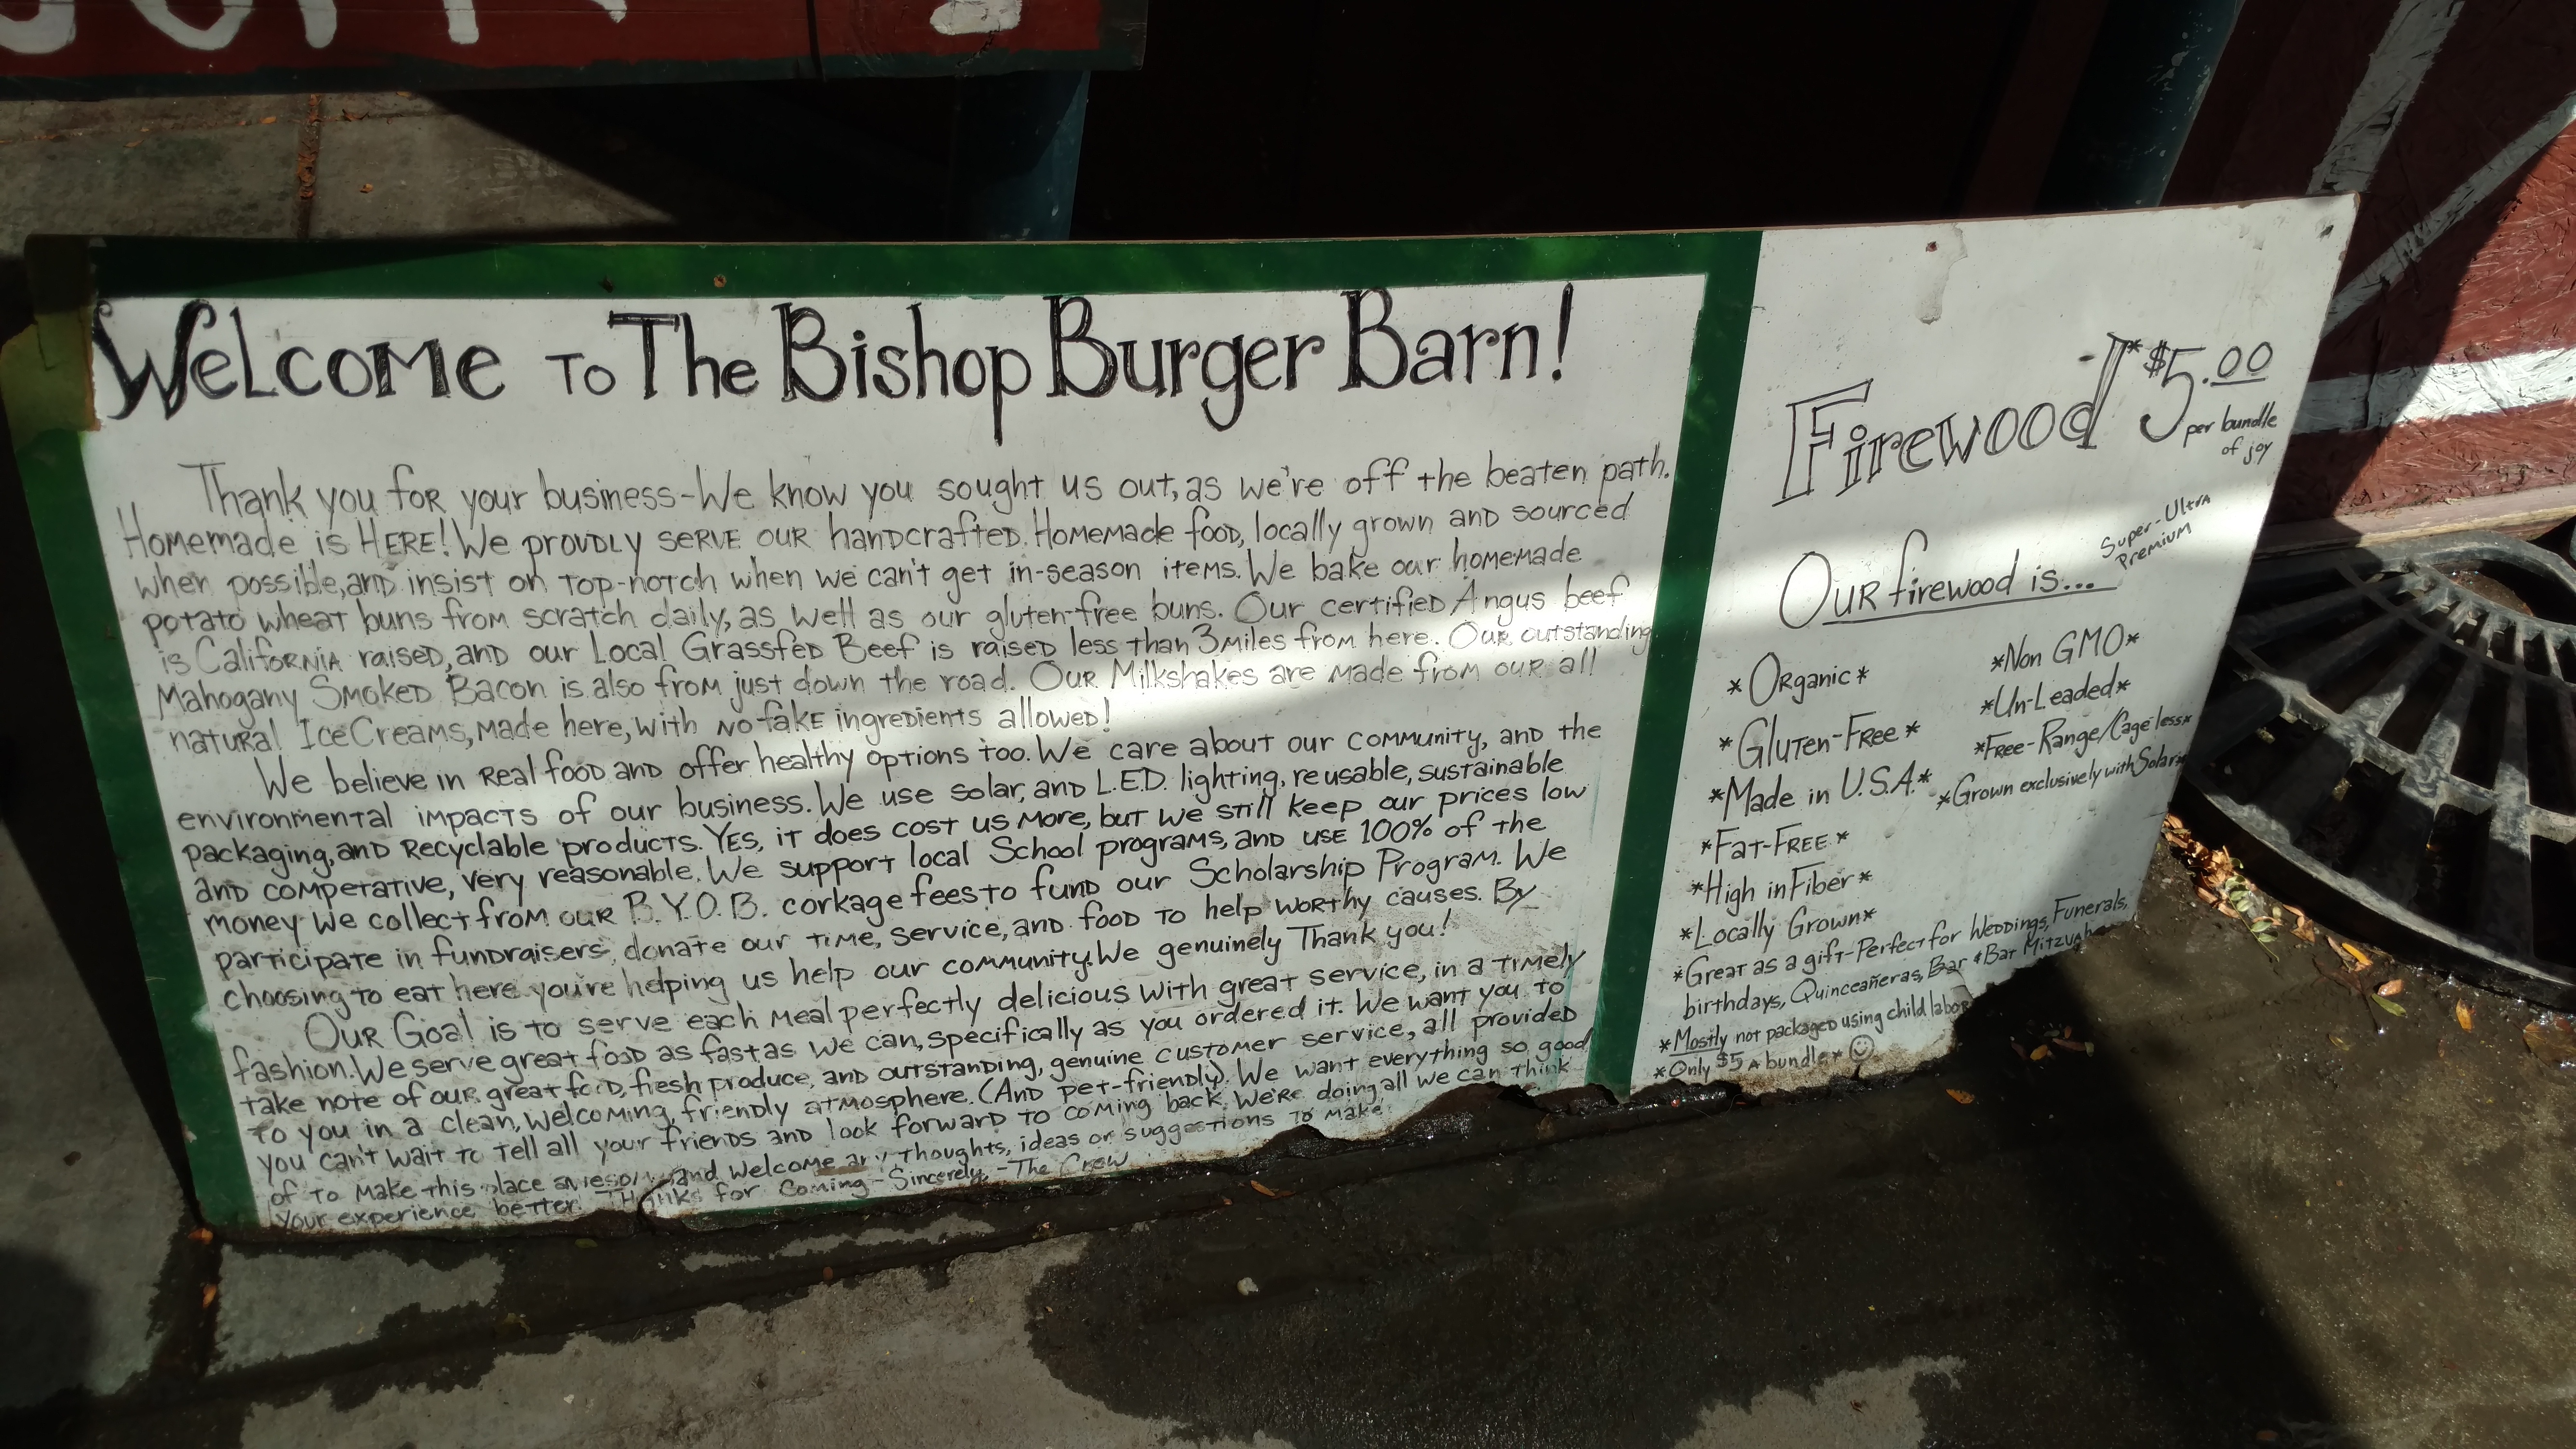 Welcome To The Bishop Burger Barn!
Thank you for your business-We know you sought us out, as we're off the beaten path.
Homemade is HERE! We proudly serve our handcrafted Homemade food, locally grown and sourced
when possible, and insist on top-notch when we can't get in-season items. We bake our homemade
potato wheat buns from scratch daily, as well as our gluten-free buns. Our certified Angus beef
is California raised, and our Local Grassfed Beef is raised less than 3 miles from here. Our outstanding
Mahogany Smoked Bacon is also from just down the road. Our Milkshakes are made from our all
natural Ice Creams, made here, with no fake ingredients allowed!
We believe in Real food and offer healthy options too. We care about our community, and the
environmental impacts of our business. We use solar, and L.E.D. lighting, reusable, sustainable
packaging, and Recyclable products. Yes, it does cost us more, but we still keep our prices low
and competative, very reasonable. We support local School programs, and use 100% of the
money we collect from our B.Y.O.B. corkage fees to fund our Scholarship Program. We
participate in fundraisers, donate our time, service, and food to help worthy causes. By
choosing to eat here you're helping us help our community. We genuinely Thank you!
Our Goal is to serve each meal perfectly delicious with great service, in a timely
fashion. We serve great food as fast as we can, specifically as you ordered it. We want you to
take note of our great food, fresh produce, and outstanding, genuine customer service, all provided
to you in a clean, welcoming, friendly atmosphere. (And pet-friendly). We want everything so good
you can't wait to tell all your friends and look forward to coming back. We're doing all we can think
of to make this place awesome, and welcome any thoughts, ideas or suggestions to make
your experience better. Thanks for Coming - Sincerely, -The Crew
Firewood -* $5.00
per bundle
of joy
Super-Ultra
Premium
Our firewood is...
*Organic*
*Gluten-Free*
*Made in U.S.A.*
*Fat-Free*
*High in Fiber*
*Locally Grown*
*Non GMO*
*Un-Leaded*
*Free-Range/Cageless*
*Grown exclusively with Solar*
*Great as a gift-Perfect for Weddings, Funerals,
birthdays, Quinceañeras, Bar & Bat Mitzvahs
*Mostly not packaged using child labor
*Only $5 a bundle*